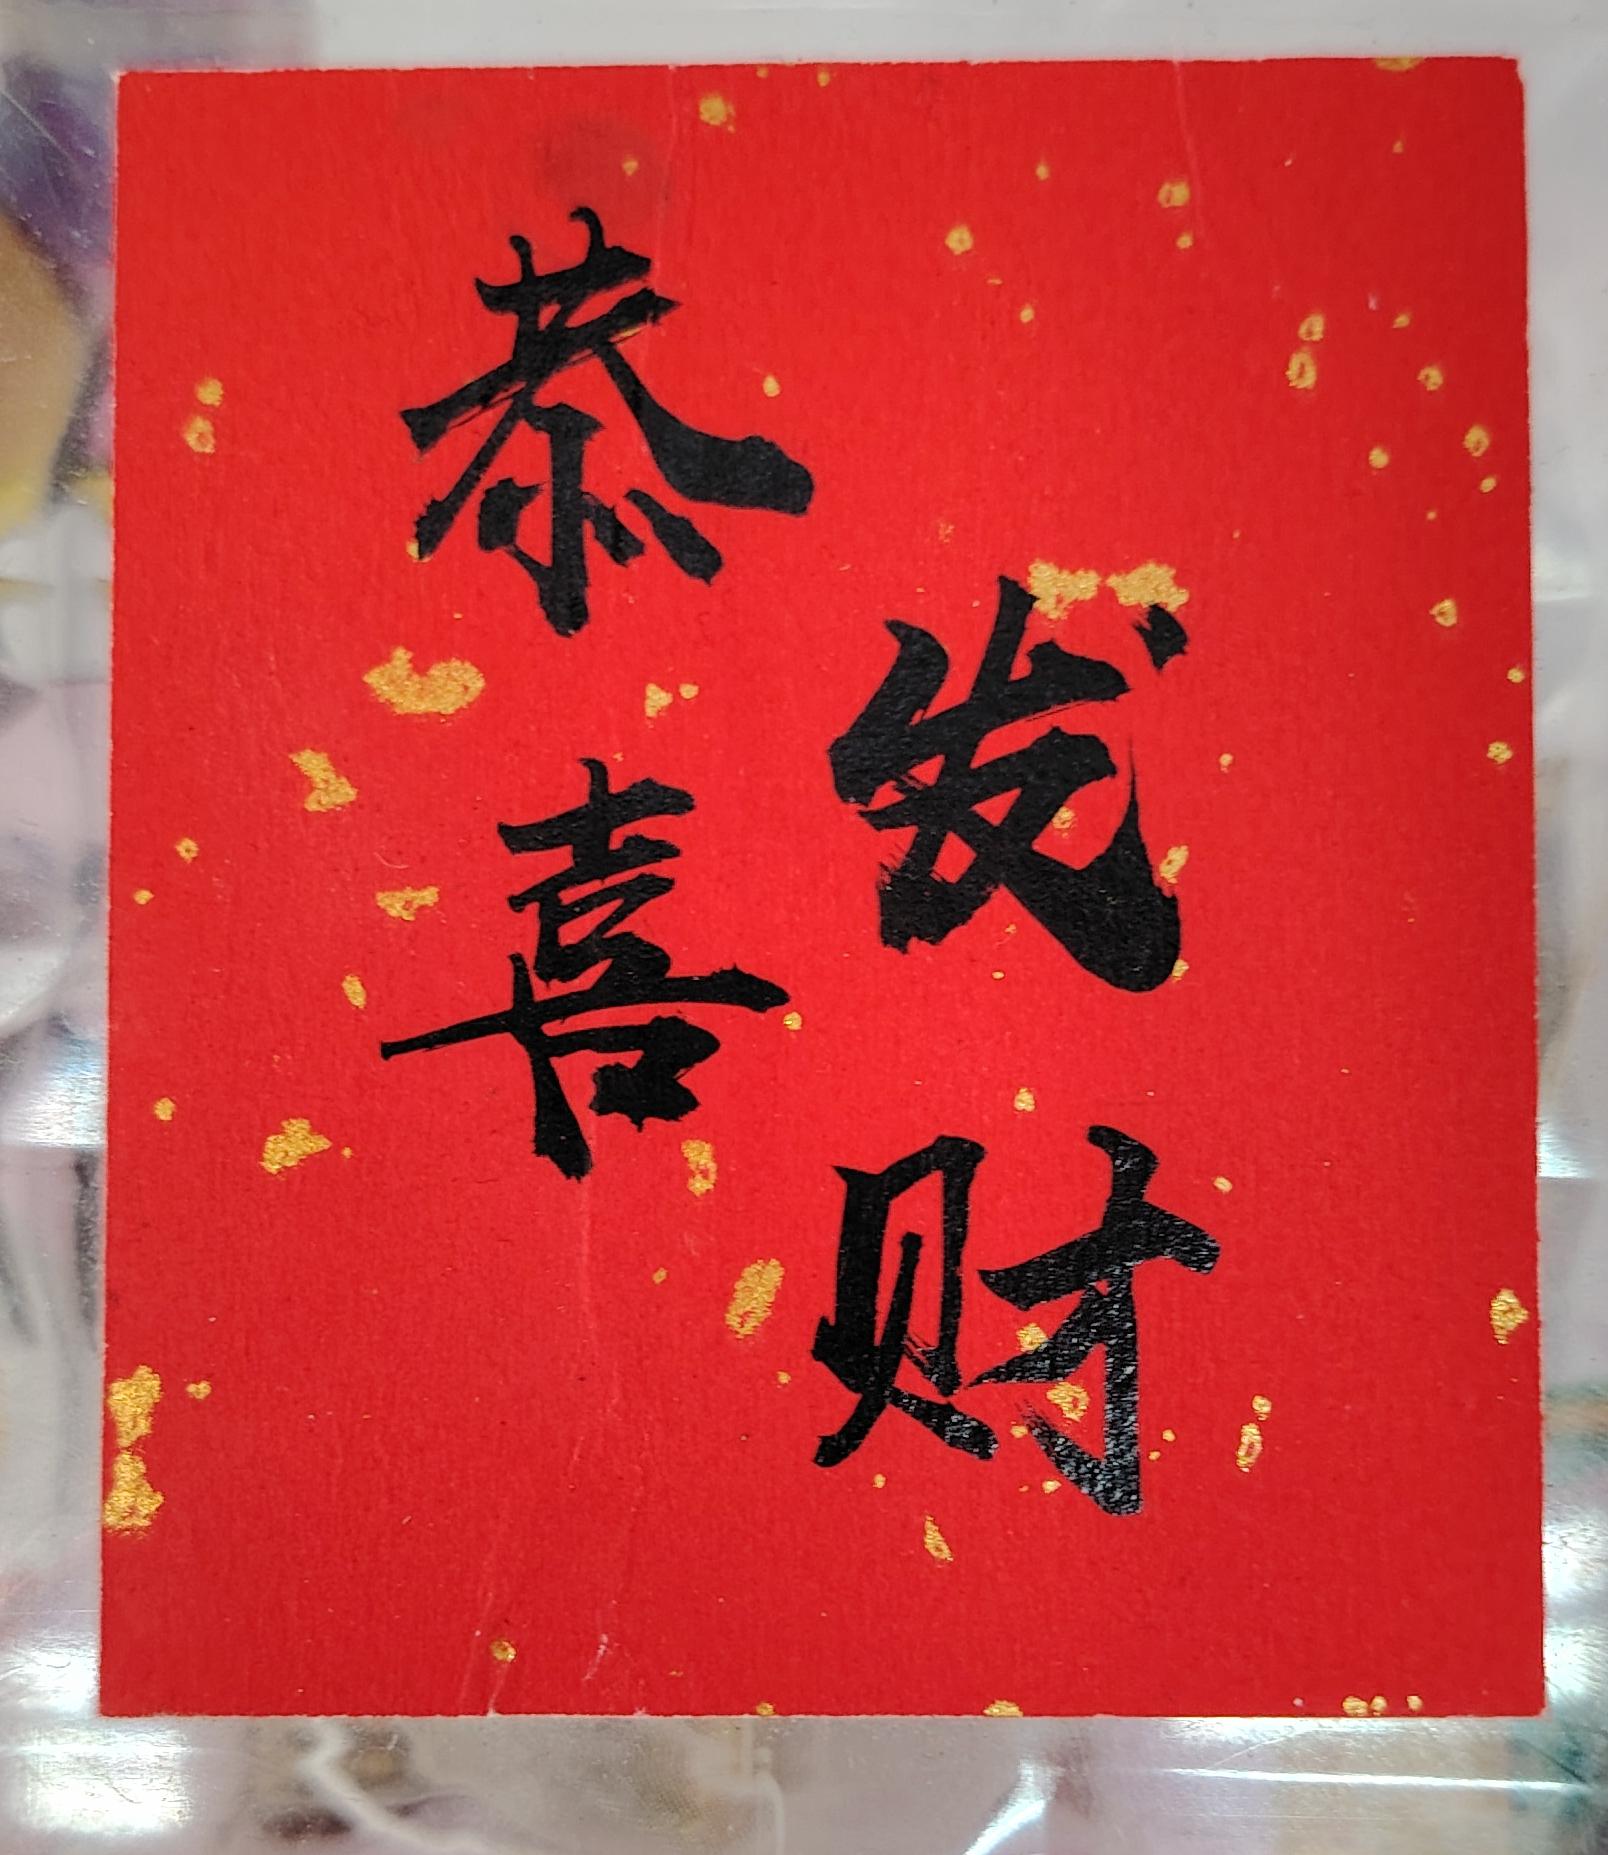 恭喜
发财